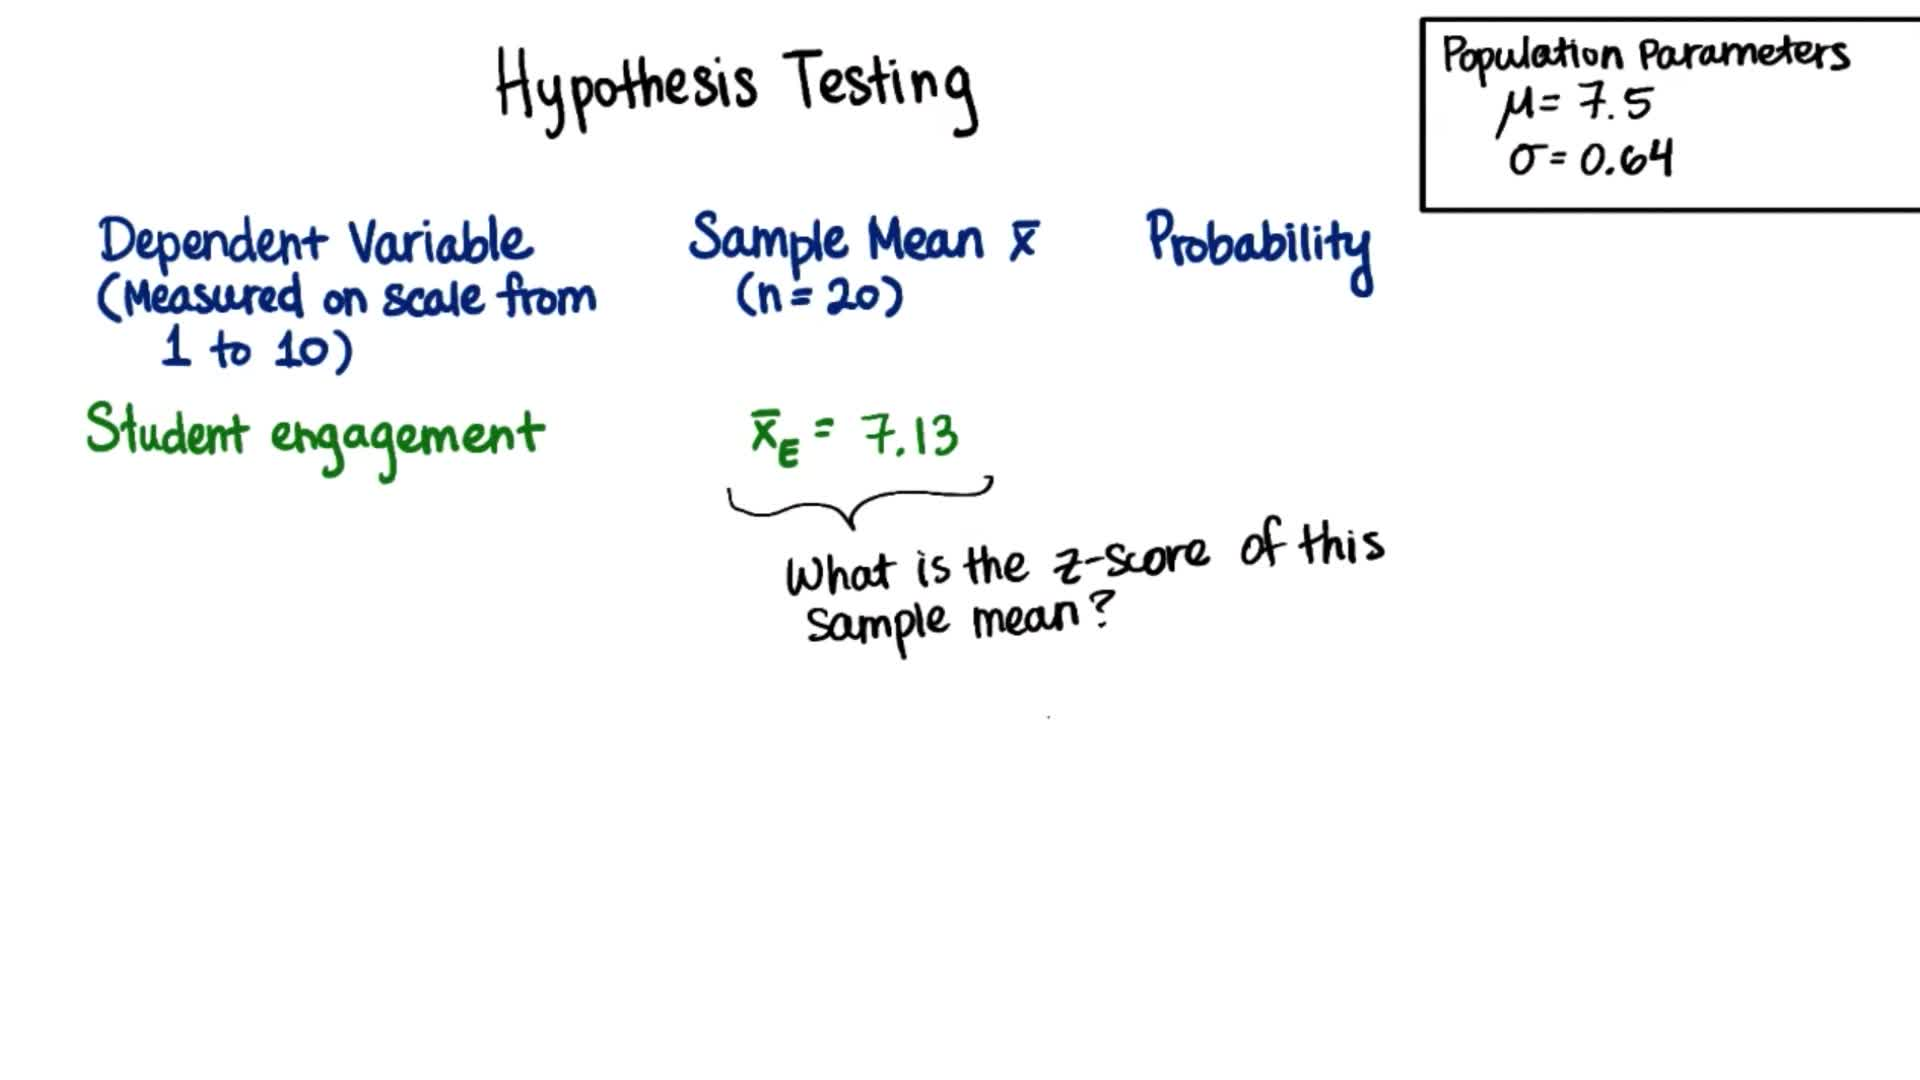 Hypothesis Testing
Population Parameters
μ = 7.5
σ = 0.64
Dependent Variable
(Measured on scale from
1 to 10)
Sample Mean x̄
(n = 20)
Probability
Student engagement
x̄E = 7.13
What is the z-score of this
sample mean?